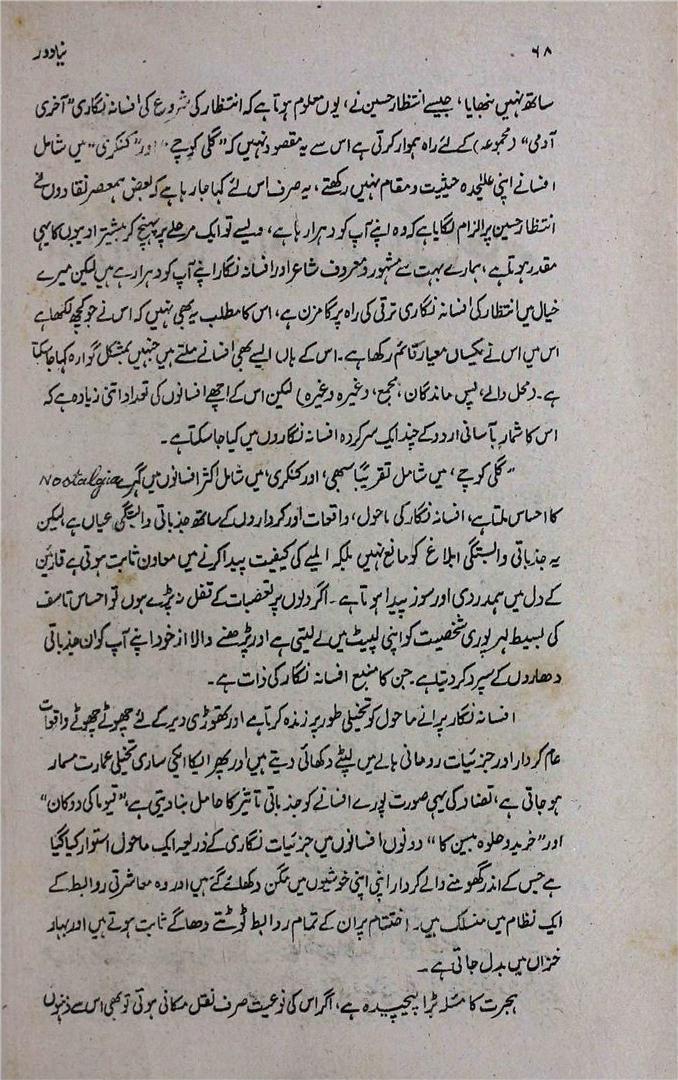 ۶۸ نیا دور
ساتھ نہیں نبھایا، جیسے انتظار حسین نے، یوں معلوم ہوتا ہے کہ انتظار کی شروع کی افسانہ نگاری "آخری
آدمی" (مجموعہ) کے لئے راہ ہموار کرتی ہے اس سے یہ مقصود نہیں کہ "گلی کوچے" اور "کنکری" میں شامل
افسانے اپنی علیٰحدہ حیثیت و مقام نہیں رکھتے، یہ صرف اس لئے کہا جا رہا ہے کہ بعض ہمعصر نقادوں نے
انتظار حسین پر الزام لگایا ہے کہ وہ اپنے آپ کو دہرا رہا ہے، ویسے تو ایک مرحلے پر پہنچ کر بیشتر ادیبوں کا یہی
مقدر ہوتا ہے، ہمارے بہت سے مشہور و معروف شاعر اور افسانہ نگار اپنے آپ کو دہرا رہے ہیں لیکن میرے
خیال میں انتظار کی افسانہ نگاری ترقی کی راہ پر گامزن ہے، اس کا مطلب یہ بھی نہیں کہ اس نے جو کچھ لکھا ہے
اس میں اس نے یکساں معیار قائم رکھا ہے۔ اس کے ہاں ایسے بھی افسانے ملتے ہیں جنہیں بمشکل گوارہ کہا جا سکتا
ہے۔ (محل والے، پس ماندگان، مجمع، وغیرہ وغیرہ) لیکن اس کے اچھے افسانوں کی تعداد اتنی زیادہ ہے کہ
اس کا شمار بآسانی اردو کے چند ایک سرکردہ افسانہ نگاروں میں کیا جا سکتا ہے۔
"گلی کوچے، میں شامل تقریباً سبھی، اور کنکری، میں شامل اکثر افسانوں میں گہرے Nostalgia
کا احساس ملتا ہے، افسانہ نگار کی ماحول، واقعات اور کرداروں کے ساتھ جذباتی وابستگی عیاں ہے لیکن
یہ جذباتی وابستگی ابلاغ کو مانع نہیں بلکہ المیے کی کیفیت پیدا کرنے میں معاون ثابت ہوتی ہے قارئین
کے دل میں ہمدردی اور سوز پیدا ہوتا ہے۔ اگر دلوں پر تعصبات کے قفل نہ پڑے ہوں تو احساس تاسف
کی بسیط لہر پوری شخصیت کو اپنی لپیٹ میں لے لیتی ہے اور پڑھنے والا از خود اپنے آپ کو ان جذباتی
دھاروں کے سپرد کر دیتا ہے۔ جن کا منبع افسانہ نگار کی ذات ہے۔
افسانہ نگار پرانے ماحول کو تخیلی طور پر زندہ کرتا ہے اور تھوڑی دیر کے لئے چھوٹے چھوٹے واقعات
عام کردار اور جزئیات رومانی ہالے میں لپٹے دکھائی دیتے ہیں اور پھر ایکا ایکی ساری تخیلی عمارت مسمار
ہو جاتی ہے، تضاد کی یہی صورت پورے افسانے کو جذباتی تاثیر کا حامل بنا دیتی ہے، "قیوما کی دوکان"
اور "خرید و حلوہ بیسن کا" دونوں افسانوں میں جزئیات نگاری کے ذریعہ ایک ماحول استوار کیا گیا
ہے جس کے اندر گھومنے والے کردار اپنی اپنی خوشیوں میں مگن دکھائے گئے ہیں اور وہ معاشرتی روابط کے
ایک نظام میں منسلک ہیں۔ اختتام پر ان کے تمام روابط ٹوٹتے دھاگے ثابت ہوتے ہیں اور بہار
خزاں میں بدل جاتی ہے۔
ہجرت کا مسئلہ بڑا پیچیدہ ہے، اگر اس کی نوعیت صرف نقل مکانی ہوتی تو بھی اس سے ذہنوں